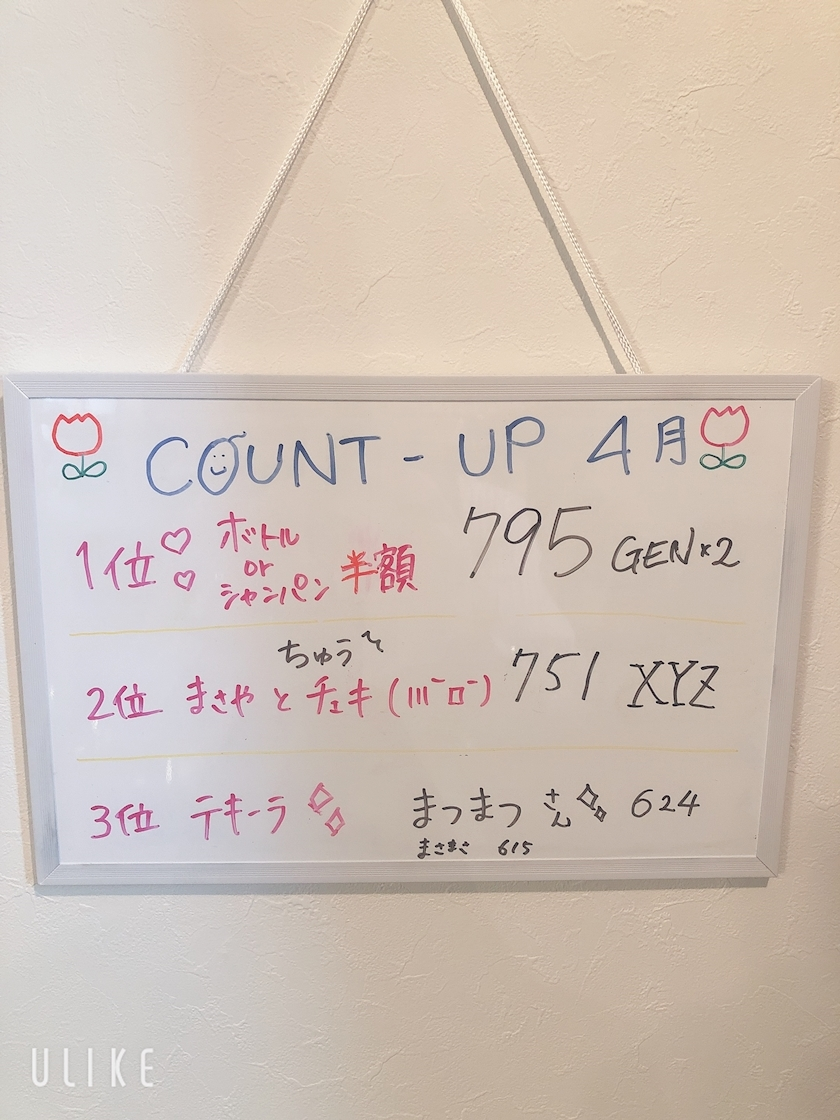 COUNT - UP 4月
1位 ボトル or シャンパン 半額 795 GEN×2
ちゅう
2位 まさや と チェキ (lll¯ロ¯) 751 XYZ
3位 テキーラ まつまつ さん 624
まさまさ 615
ULIKE